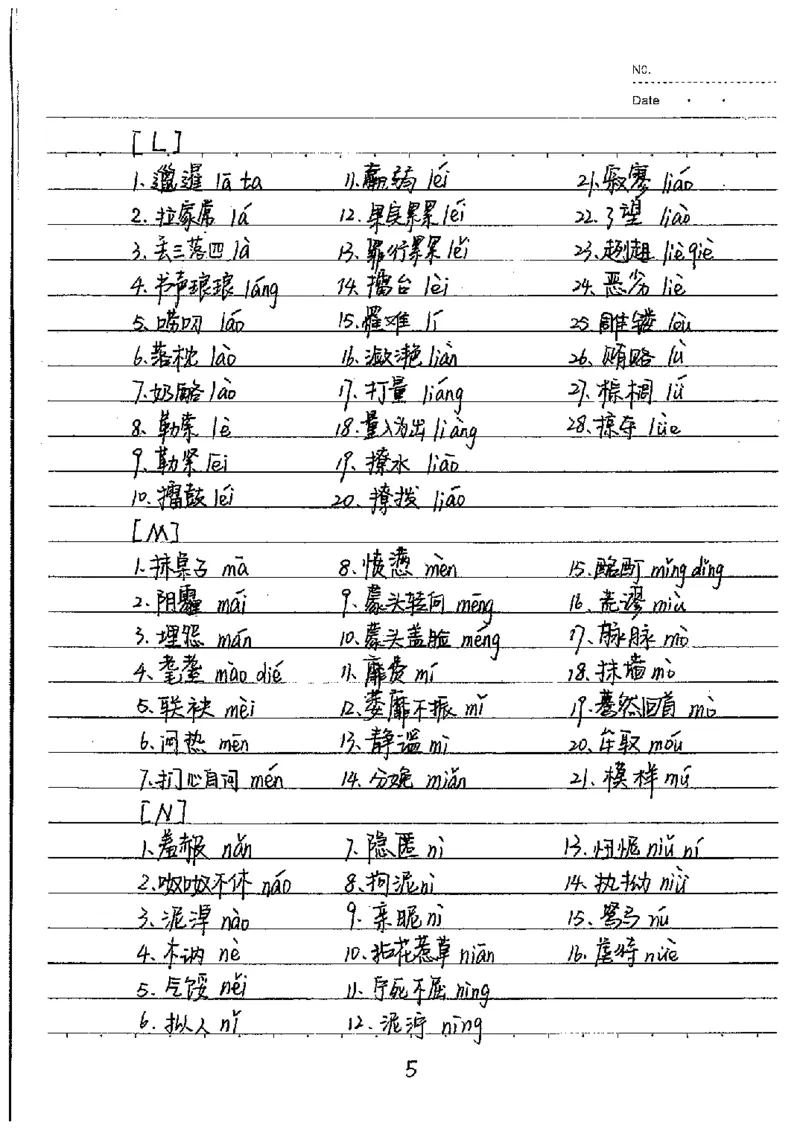 No.
Date
[L]
1.邋遢 lā ta 11.羸弱 léi 21.寂寥 liáo
2.拉家常 lá 12.果实累累 léi 22.了望 liào
3.丢三落四 là 13.罪行累累 lěi 23.趔趄 liè qiè
4.书声琅琅 láng 14.擂台 lèi 24.恶劣 liè
5.唠叨 láo 15.罹难 lí 25.雕镂 lòu
6.落枕 lào 16.潋滟 liàn 26.贿赂 lù
7.奶酪 lào 17.打量 liáng 27.棕榈 lǘ
8.勒索 lè 18.量入为出 liàng 28.掠夺 lüè
9.勒紧 lēi 19.撩水 liāo
10.擂鼓 léi 20.撩拨 liáo
[M]
1.抹桌子 mā 8.愤懑 mèn 15.酩酊 mǐng dǐng
2.阴霾 mái 9.蒙头转向 mēng 16.荒谬 miù
3.埋怨 mán 10.蒙头盖脸 méng 17.脉脉 mò
4.耄耋 mào dié 11.靡费 mí 18.抹墙 mò
5.联袂 mèi 12.萎靡不振 mǐ 19.蓦然回首 mò
6.闷热 mēn 13.静谧 mì 20.牟取 móu
7.扪心自问 mén 14.分娩 miǎn 21.模样 mú
[N]
1.羞赧 nǎn 7.隐匿 nì 13.忸怩 niǔ ní
2.呶呶不休 náo 8.拘泥 nì 14.执拗 niù
3.泥淖 nào 9.亲昵 nì 15.驽马 nú
4.木讷 nè 10.拈花惹草 niān 16.虐待 nüè
5.气馁 něi 11.宁死不屈 nìng
6.拟人 nǐ 12.泥泞 nìng
5